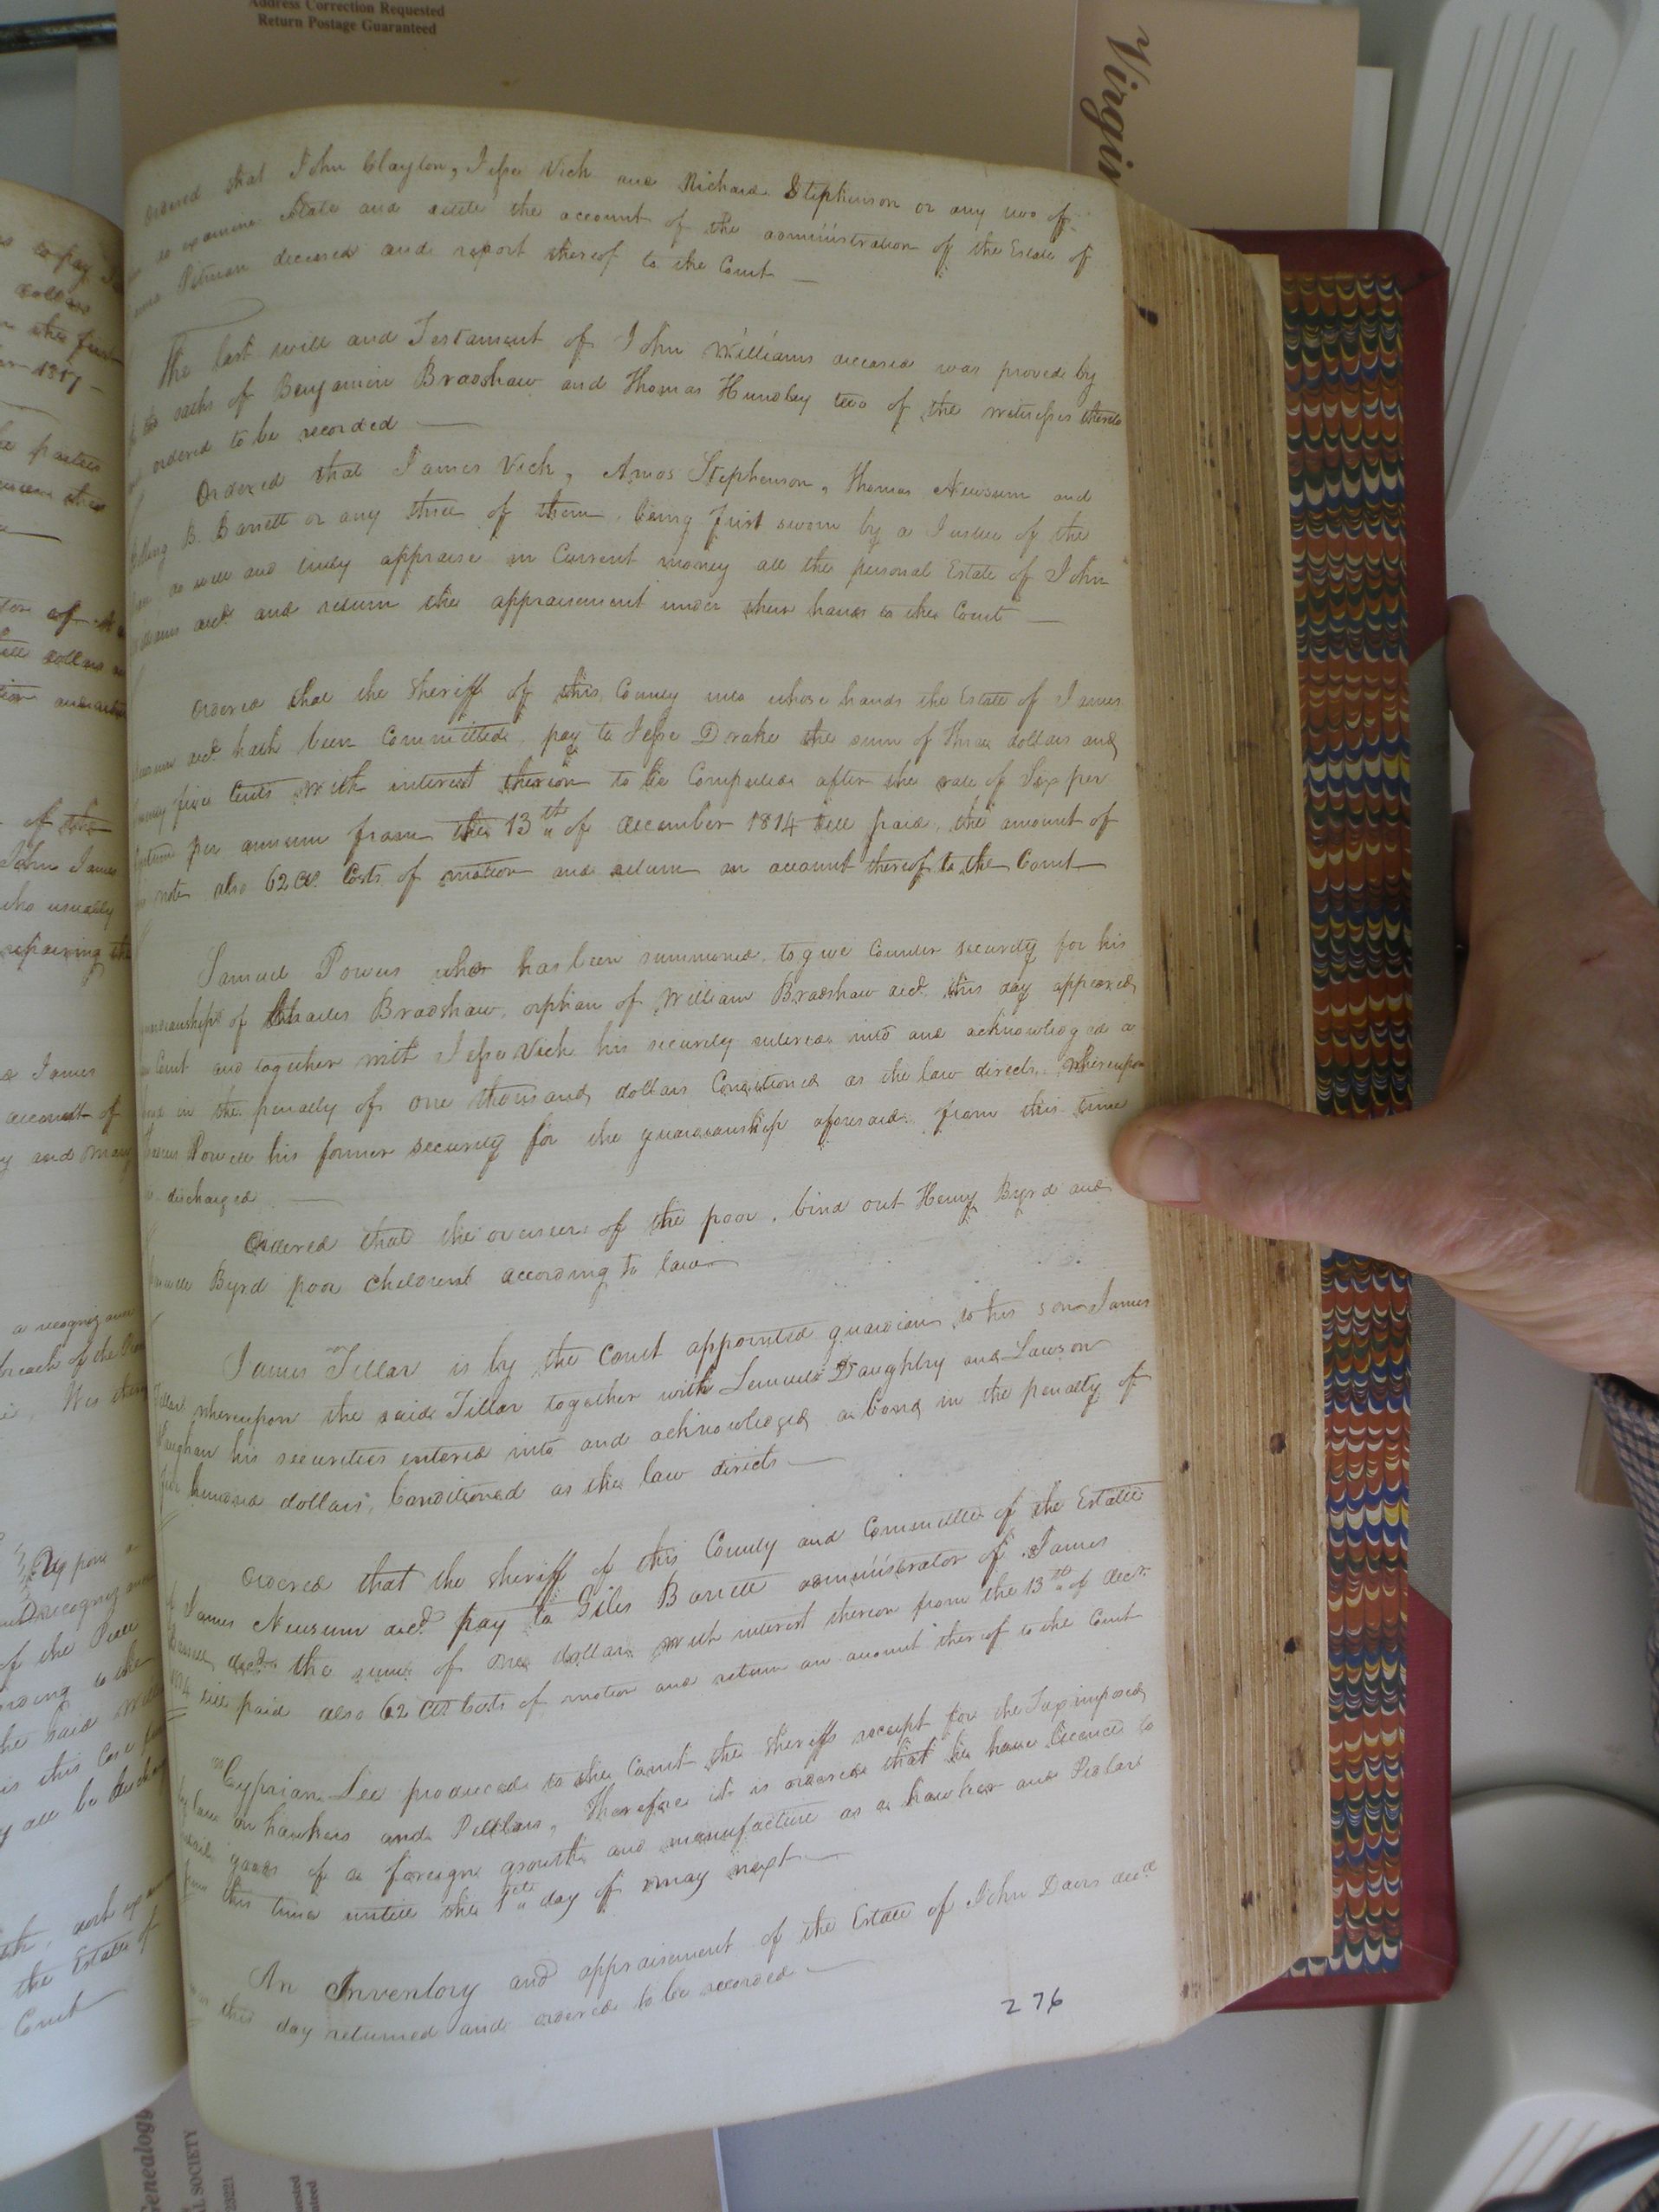 Address Correction Requested
Return Postage Guaranteed
Virgin
Ordered that John Clayton, Jesse Vick and Richard Stephenson or any two of
to examine State and settle the account of the administration of the Estate of
Pitman deceased and report thereof to the Court —
The last will and Testament of John Williams deceased was proved by
the oaths of Benjamin Bradshaw and Thomas Hundley two of the witnesses thereto
and ordered to be recorded —
Ordered that James Vick, Amos Stephenson, Thomas Newsum and
B. Barrett or any three of them, being first sworn by a Justice of the
do well and truly appraise in Current money all the personal Estate of John
Williams decd. and return the appraisement under their hands to the Court —
Ordered that the Sheriff of this County into whose hands the Estate of James
Newsum decd. hath been Committed, pay to Jesse Drake the sum of Three dollars and
twenty five Cents with interest thereon to be Computed after the rate of Six per
Centum per annum from the 13th of december 1814 till paid, the amount of
his note also 62 Cts. Costs of motion and return an account thereof to the Court —
Samuel Powers who has been summoned to give Counter security for his
guardianship of Charles Bradshaw, orphan of William Bradshaw decd. this day appeared
in Court and together with Jesse Vick his security entered into and acknowledged a
bond in the penalty of one thousand dollars Conditioned as the law directs, whereupon
Powell his former security for the guardianship aforesaid from this time
is discharged —
Ordered that the overseers of the poor, bind out Henry Byrd and
Byrd poor children according to law —
James Tillar is by the Court appointed guardian to his son James
Tillar whereupon the said Tillar together with Lemuel Daughtry and Lawson
Vaughan his securities entered into and acknowledged a bond in the penalty of
hundred dollars, Conditioned as the law directs —
Ordered that the Sheriff of this County and Committee of the Estate
of James Newsum decd. pay to Giles Barrett administrator of James
Barrett decd. the sum of one dollar with interest thereon from the 13th of decr.
1814 till paid also 62 Cts Costs of motion and return an account thereof to the Court
Cyprian Lee produced to the Court the Sheriffs receipt for the Tax imposed
by law on hawkers and Pedlars, Therefore it is ordered that he have licence to
retail goods of a foreign growth and manufacture as a hawker and Pedlar
from this time untill the 1st day of may next —
An Inventory and appraisement of the Estate of John Davis decd
was this day returned and ordered to be recorded —
276
to pay
dollars
the first
1817 —
of
dollars
of the
John James
who usually
repairing the
James
account of
and
a recognizance
breach of the
Upon a
recognizance
of the Peace
the said
is this Case
all be
the Estate of
Court
Genealogy
L SOCIETY
23221